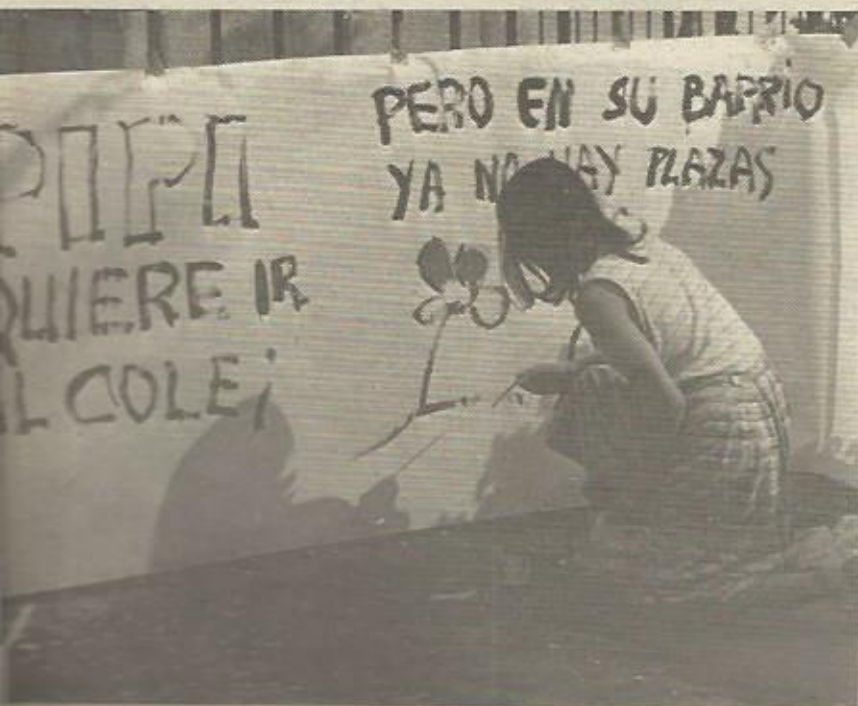 PIPI
QUIERE IR
AL COLE¡
PERO EN SU BARRIO
YA NO HAY PLAZAS